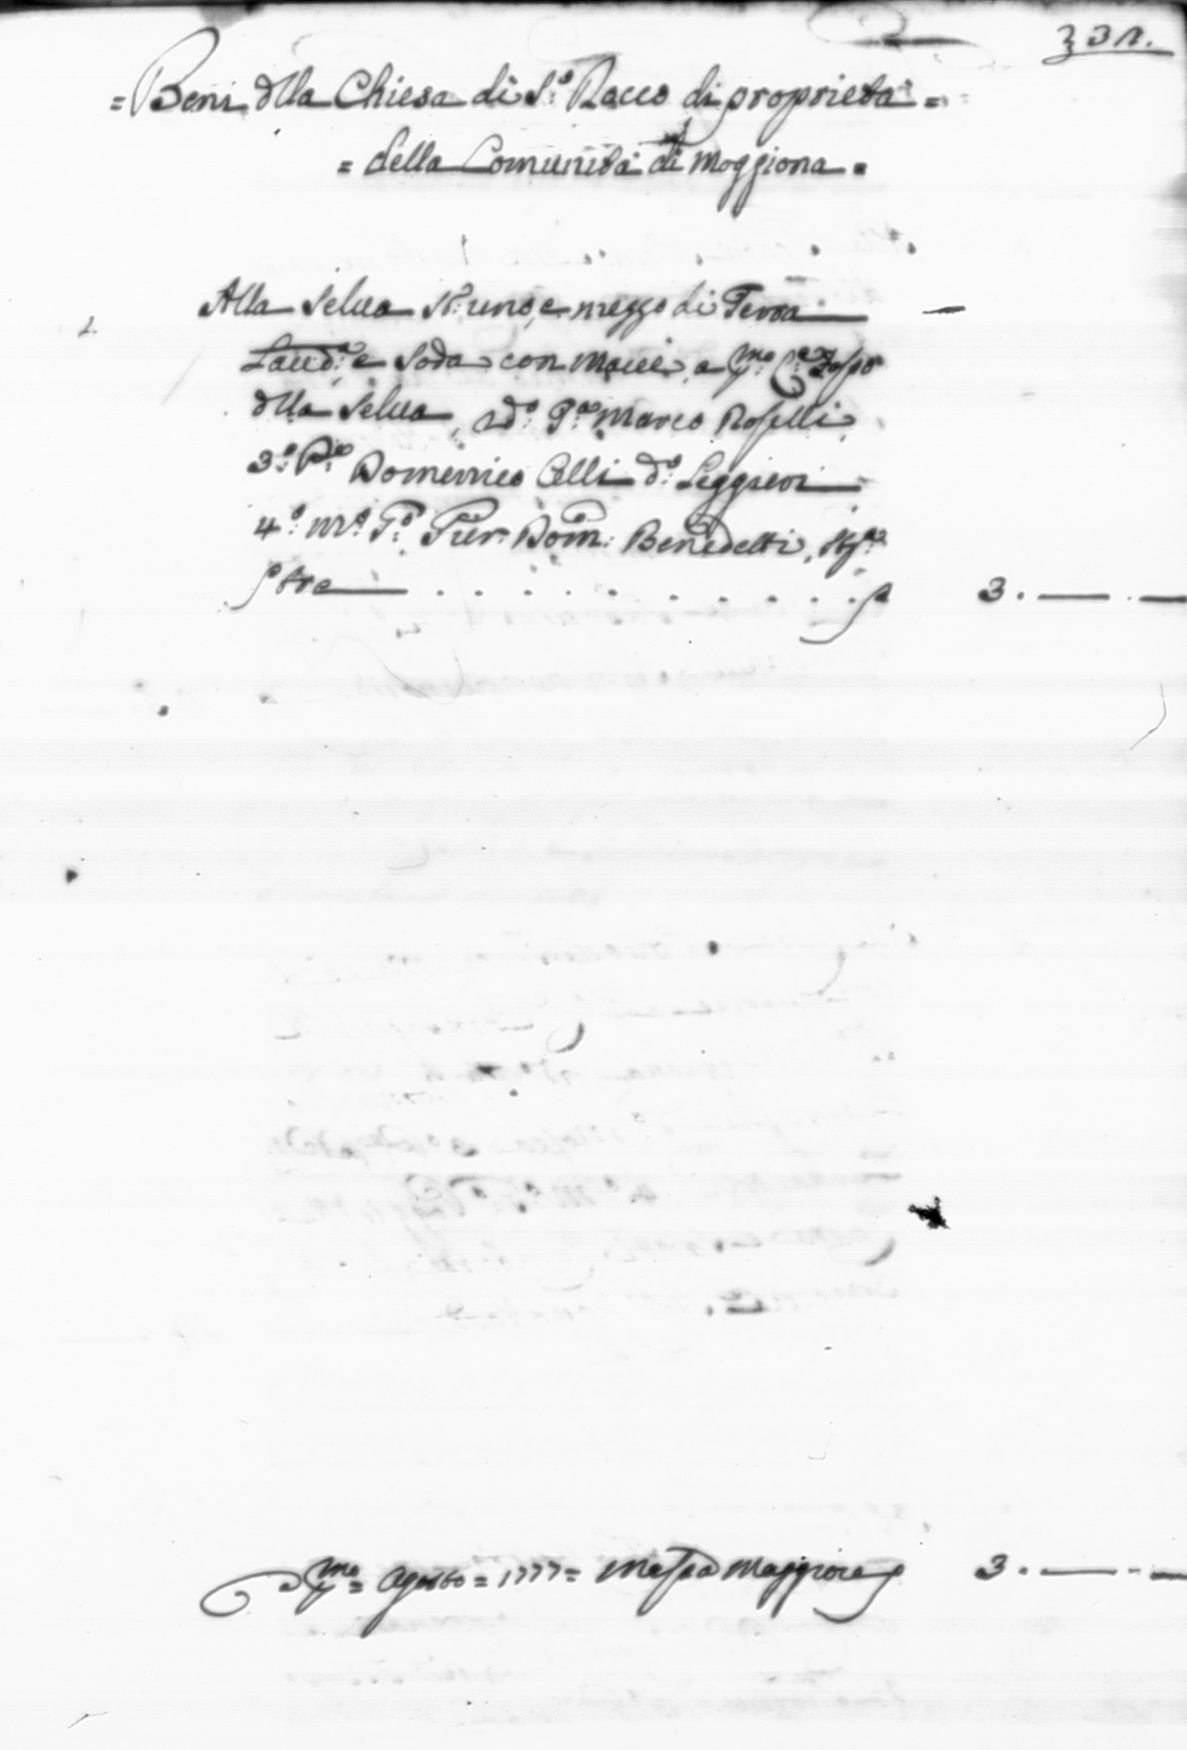 331.
= Beni dlla Chiesa di S:º Rocco di proprietà =
= della Comunità di Moggiona =
1. Alla Selua St: uno, e mezzo di Terra —
Lauo:ª e Soda con Macie, a pmo:
dlla Selua, 2dº: Pª: Marco Roselli,
3º: Domenico Celli dº: Leggieri
4º: Mº: Pº: Pier: Dom: Benedetti, Stª:
tre . . . . . . . . . . . 3. — . —
pmo = Agosto = 1777 = Massa Maggiore 3. — - —